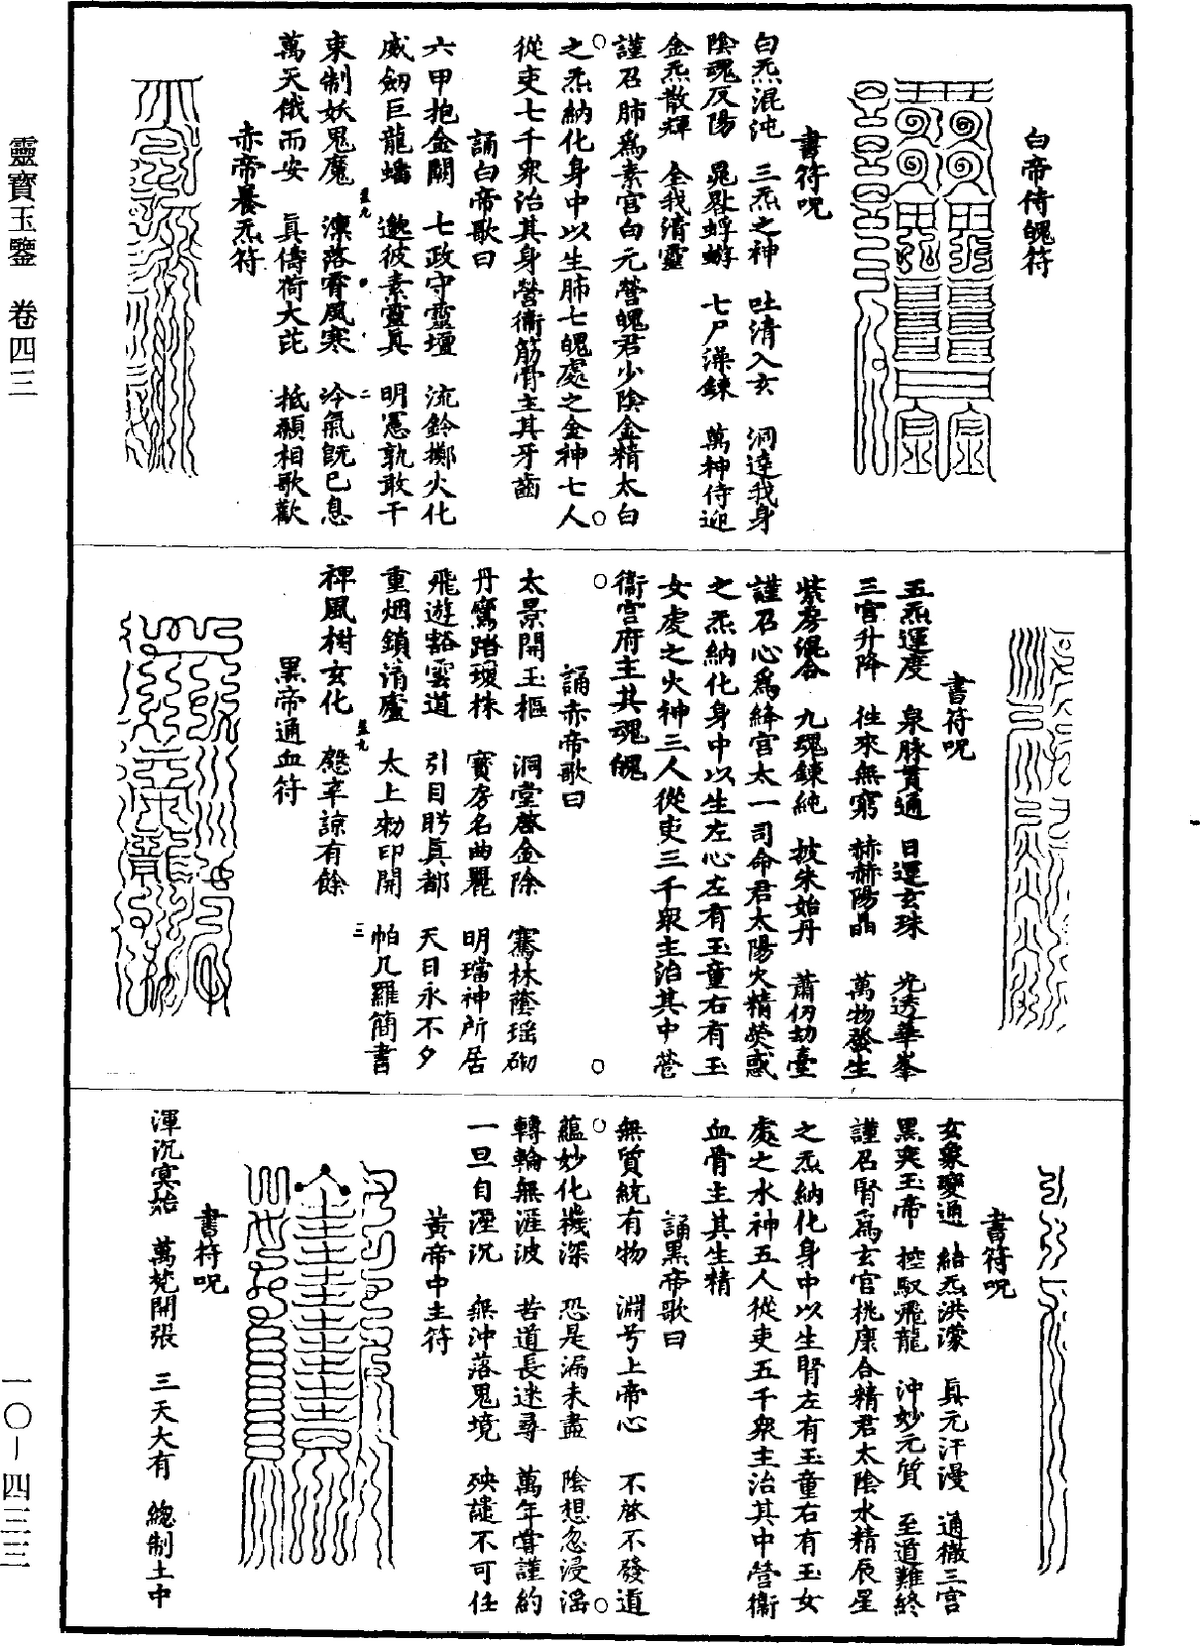 白帝侍魄符
書符呪
白炁混沌 三炁之神 吐清入玄 洞達我身
陰魂反陽 晃畧蜉蝣 七尸澡鍊 萬神侍迎
金炁散輝 全我清靈
謹召肺爲素官白元營魄君少陰金精太白
之炁納化身中以生肺七魄處之金神七人
從吏七千衆治其身營衞筋骨主其牙齒
誦白帝歌曰
六甲抱金關 七政守靈壇 流鈴擲火化
威劒巨龍蟠 邀彼素靈真 明憲孰敢干
束制妖鬼魔 凜落霄風寒 冷氣旣已息
萬天俄而安 眞儔荷大芘 抵願相歌歡
赤帝養炁符
書符呪
五炁運度 泉脉貫通 日運玄珠 光透華峯
三官升降 徃來無窮 赫赫陽晶 萬物發生
紫房混合 九魂鍊純 披朱始丹 蕭仍劫臺
謹召心爲絳官太一司命君太陽火精熒惑
之炁納化身中以生左心左有玉童右有玉
女處之火神三人從吏三千衆主治其中營
衞宫府主其魂魄
誦赤帝歌曰
太景開玉樞 洞堂啓金除 騫林蔭瑶砌
丹鸞踏瓊株 寶房名曲麗 明璫神所居
飛遊豁雲道 引目盻眞都 天日永不夕
重烟鎖清廬 太上勑印開 帕几羅簡書
禆風樹玄化 愍幸諒有餘
黑帝通血符
書符呪
玄象變通 結炁洪濛 眞元汗漫 通徹三宫
黑爽玉帝 控馭飛龍 沖妙元質 至道難終
謹召腎爲玄官桃康合精君太陰水精辰星
之炁納化身中以生腎左有玉童右有玉女
處之水神五人從吏五千衆主治其中營衞
血骨主其生精
誦黑帝歌曰
無質統有物 淵兮上帝心 不啓不發道
藴妙化機深 恐是漏未盡 陰想忽浸滛
轉輪無涯波 苦道長迷尋 萬年嘗謹約
一旦自湮沉 無沖落鬼境 殃譴不可任
黃帝中主符
書符呪
渾沉冥始 萬梵開張 三天大有 總制土中
靈寶玉鑒 卷四三
一〇－四三三